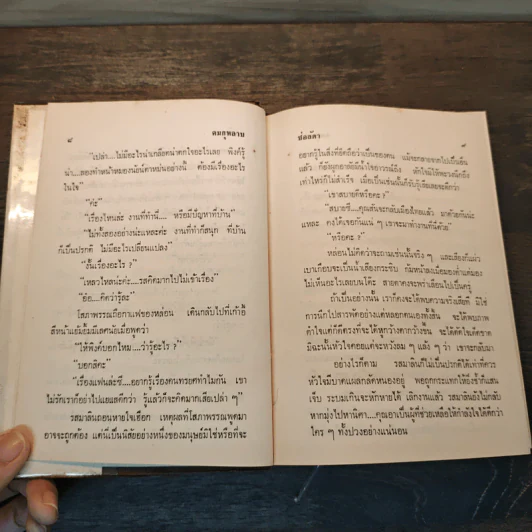 ๔
คมกุหลาบ
"เปล่า....ไม่มีอะไรน่าเกลียดน่าตกใจอะไรเลย พิงค์รู้
น่า....ลองทำหน้าหมองนัยน์ตาหม่นอย่างนี้ ต้องมีเรื่องอะไร
ในใจ"
"ค่ะ"
"เรื่องไหนล่ะ งานที่ทำนี่.... หรือมีปัญหาที่บ้าน"
"ไม่ทั้งสองอย่างน่ะแหละค่ะ งานที่ทำก็สนุก ที่บ้าน
ก็เป็นปรกติ ไม่มีอะไรเปลี่ยนแปลง"
"งั้นเรื่องอะไร ?"
"เหลวไหลน่ะค่ะ....รสคิดมากไปไม่เข้าเรื่อง"
"อ้อ....คิดว่ารู้ละ"
โสภาพรรณถือกาแฟของหล่อน เดินกลับไปที่เก้าอี้
สีหน้าแย้มยิ้มมีเลศนัยเมื่อพูดว่า
"ให้พิงค์บอกไหม....ว่ารู้อะไร ?"
"บอกสิคะ"
"เรื่องแฟนล่ะซี....อยากรู้เรื่องคนทรยศทำไมกัน เขา
ไม่รักเราก็อย่าไปแยแสดีกว่า รู้แล้วก็จะคิดมากเสียเปล่า ๆ"
รสมาลินถอนหายใจเฮือก เหตุผลที่โสภาพรรณพูดมา
อาจจะถูกต้อง แต่นี่เป็นนิสัยอย่างหนึ่งของมนุษย์มิใช่หรือที่จะ
ช่อลัดา
๕
อยากรู้ในสิ่งที่ยึดถือว่าเป็นของตน แม้จะกลายจากไปเป็นอื่น
แล้ว ก็ยังผูกอาลัยมีน้ำใจอาวรณ์ถึง
เท่าไหร่ก็ไม่สำเร็จ เมื่อเป็นเช่นนั้นก็รับรู้เสียเลยจะดีกว่า
"เขาสบายดีหรือคะ ?"
"สบายซี....คุณสันจะกลับเมืองไทยแล้ว มาด้วยกันน่ะ
แหละ คงได้เจอกันแน่ ๆ เขาจะมาทำงานที่นี่ด้วย"
"หรือคะ ?"
หล่อนไม่คิดว่าจะถามเช่นนั้นจริง ๆ และเสียงก็แผ่ว
เบาเกือบจะเป็นน้ำเสียงกระซิบ ก้มหน้าลงเมียงมองต่ำแต่มอง
ไม่เห็นอะไรเลยบนโต๊ะ สายตาคงจะพร่าเลือนไปเป็นครู่
ถ้าเป็นอย่างนั้น เราก็คงจะได้พบความจริงเสียที มิใช่
การนึกไปสารพัดอย่างแต่หลอกตนเองทั้งสิ้น จะได้พบภาพ
ตำใจแต่ก็คงดีที่จะได้หูกว้างตากว้างขึ้น จะได้ตัดใจเด็ดขาด
มิฉะนั้นหัวใจคอยแต่จะหวังลม ๆ แล้ง ๆ ว่า เขาจะกลับมา
อย่างไรก็ตาม รสมาลินก็ไม่เป็นปรกติได้เท่าที่ควร
หัวใจมีบาดแผลกลัดหนองอยู่ พอถูกกระแทกให้ยิ่งช้ำก็แสน
เจ็บ ระบมเกินจะหักหายได้ เลิกงานแล้ว รสมาลินยังไม่กลับ
หากมุ่งไปหานิตา....คุณอาเป็นผู้ที่ช่วยเหลือให้กำลังใจได้ดีกว่า
ใคร ๆ ทั้งปวงอย่างแน่นอน